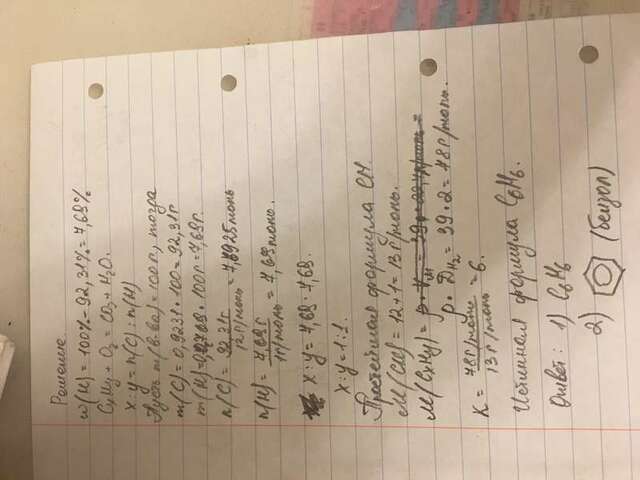 Решение.
w(H) = 100% - 92,31% = 7,69%
CxHy + O2 = CO2 + H2O.
x : y = n(C) : n(H)
Пусть m(в-ва) = 100г, тогда
m(C) = 0,9231 · 100 = 92,31г
m(H) = 0,0769 · 100г = 7,69г.
n(C) = 92,31г / 12г/моль = 7,6925моль
n(H) = 7,69г / 1г/моль = 7,69моль.
x : y = 7,69 : 7,69.
x : y = 1 : 1.
Простейшая формула CH.
M(CH) = 12 + 1 = 13г/моль.
M(CxHy) = ρ · VM = 39 · 22,4г/моль =
ρ · DH2 = 39 · 2 = 78г/моль.
K = 78г/моль / 13г/моль = 6.
Истинная формула C6H6.
Ответ: 1) C6H6
2) (бензол)